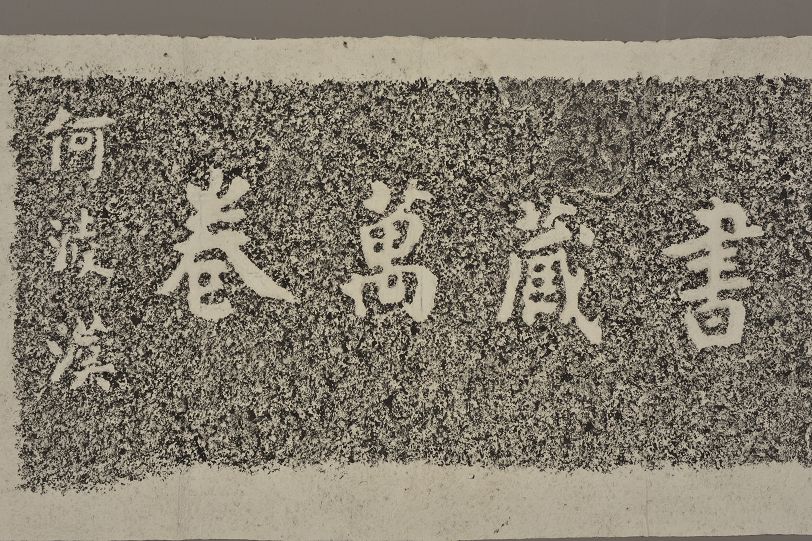 書藏萬卷
何波漢